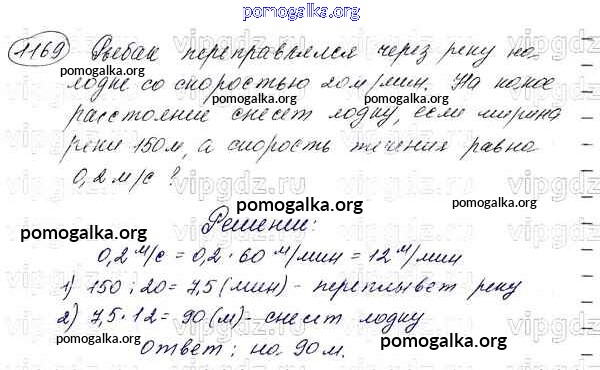 pomogalka.org
1169 Рыбак переправлялся через реку на
лодке со скоростью 20 м/мин. На какое
pomogalka.org pomogalka.org pomogalka.org
расстояние снесет лодку, если ширина
реки 150 м, а скорость течения равна
0,2 м/с?
vipgdz.ru vipgdz.ru vipgdz.ru
pomogalka.org
Решение:
pomogalka.org pomogalka.org
0,2 м/с = 0,2 · 60 м/мин = 12 м/мин
1) 150 : 20 = 7,5 (мин) - переплывет реку
2) 7,5 · 12 = 90 (м) - снесет лодку
pomogalka.org pomogalka.org
Ответ: на 90 м.